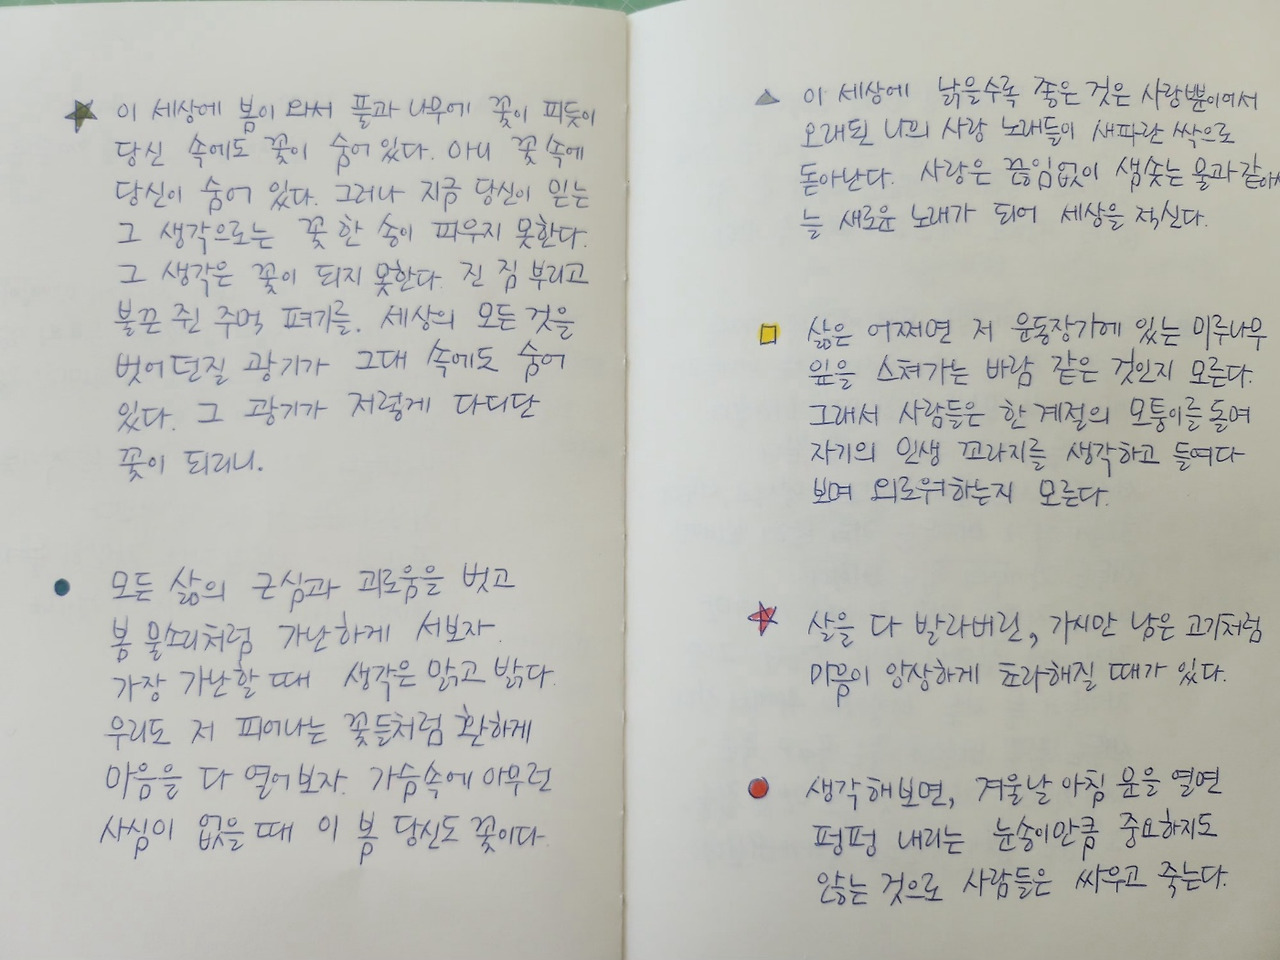 이 세상에 봄이 와서 풀과 나무에 꽃이 피듯이
당신 속에도 꽃이 숨어 있다. 아니 꽃 속에
당신이 숨어 있다. 그러나 지금 당신이 믿는
그 생각으로는 꽃 한 송이 피우지 못한다.
그 생각은 꽃이 되지 못한다. 진 짐 부리고
불끈 쥔 주먹 펴기를. 세상의 모든 것을
벗어던질 광기가 그대 속에도 숨어
있다. 그 광기가 저렇게 다디단
꽃이 되리니.
모든 삶의 근심과 괴로움을 벗고
봄 물소리처럼 가난하게 서보자.
가장 가난할 때 생각은 맑고 밝다.
우리도 저 피어나는 꽃들처럼 환하게
마음을 다 열어보자. 가슴속에 아무런
사심이 없을 때 이 봄 당신도 꽃이다.
이 세상에 낡을수록 좋은 것은 사랑뿐이어서
오래된 나의 사랑 노래들이 새파란 싹으로
돋아난다. 사랑은 끊임없이 샘솟는 물과 같아서
늘 새로운 노래가 되어 세상을 적신다.
삶은 어쩌면 저 운동장가에 있는 미루나무
잎을 스쳐가는 바람 같은 것인지 모른다.
그래서 사람들은 한 계절의 모퉁이를 돌며
자기의 인생 꼬라지를 생각하고 들여다
보며 외로워하는지 모른다.
살을 다 발라버린, 가시만 남은 고기처럼
마음이 앙상하게 초라해질 때가 있다.
생각해보면, 겨울날 아침 문을 열면
펑펑 내리는 눈송이만큼 중요하지도
않는 것으로 사람들은 싸우고 죽는다.